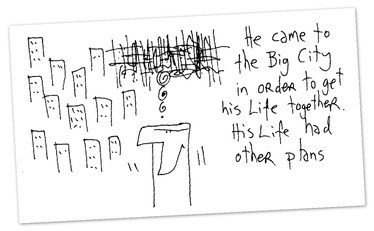 He came to
the Big City
in order to get
his Life together.
His Life had
other plans